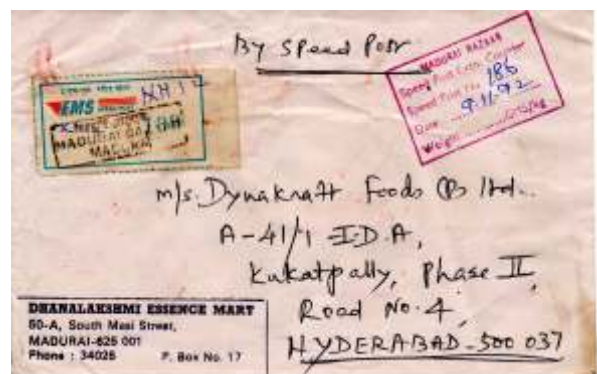 By Speed Post
EMS
MADURAI BAZAAR
Speed Post Extn. Counter
Speed Post No. 186
Date 9.11.92
Weight
M/s. Dynakraft Foods (P) Ltd..
A-41/1 I.D.A,
Kukatpally, Phase II,
Road No. 4,
HYDERABAD-500 037
DHANALAKSHMI ESSENCE MART
50-A, South Masi Street,
MADURAI-625 001
Phone : 34025 P. Box No. 17